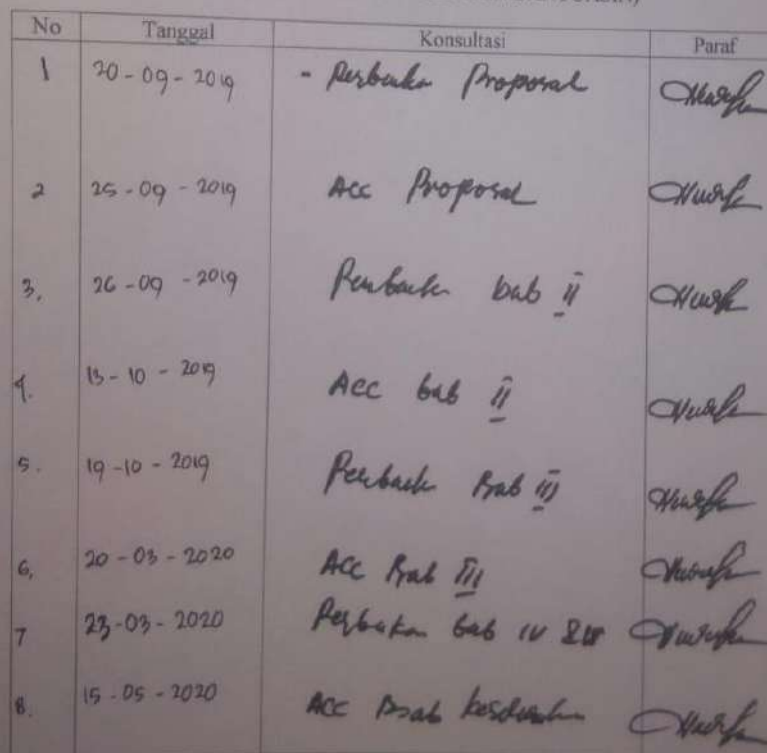 No Tanggal Konsultasi Paraf
1 20-09-2019 - Perbaikan Proposal
2 25-09-2019 Acc Proposal
3. 26-09-2019 Perbaikan bab II
4. 13-10-2019 Acc bab II
5. 19-10-2019 Perbaikan Bab III
6. 20-03-2020 Acc Bab III
7 23-03-2020 Perbaikan bab IV &
8. 15-05-2020 Acc Bab keseluruhan